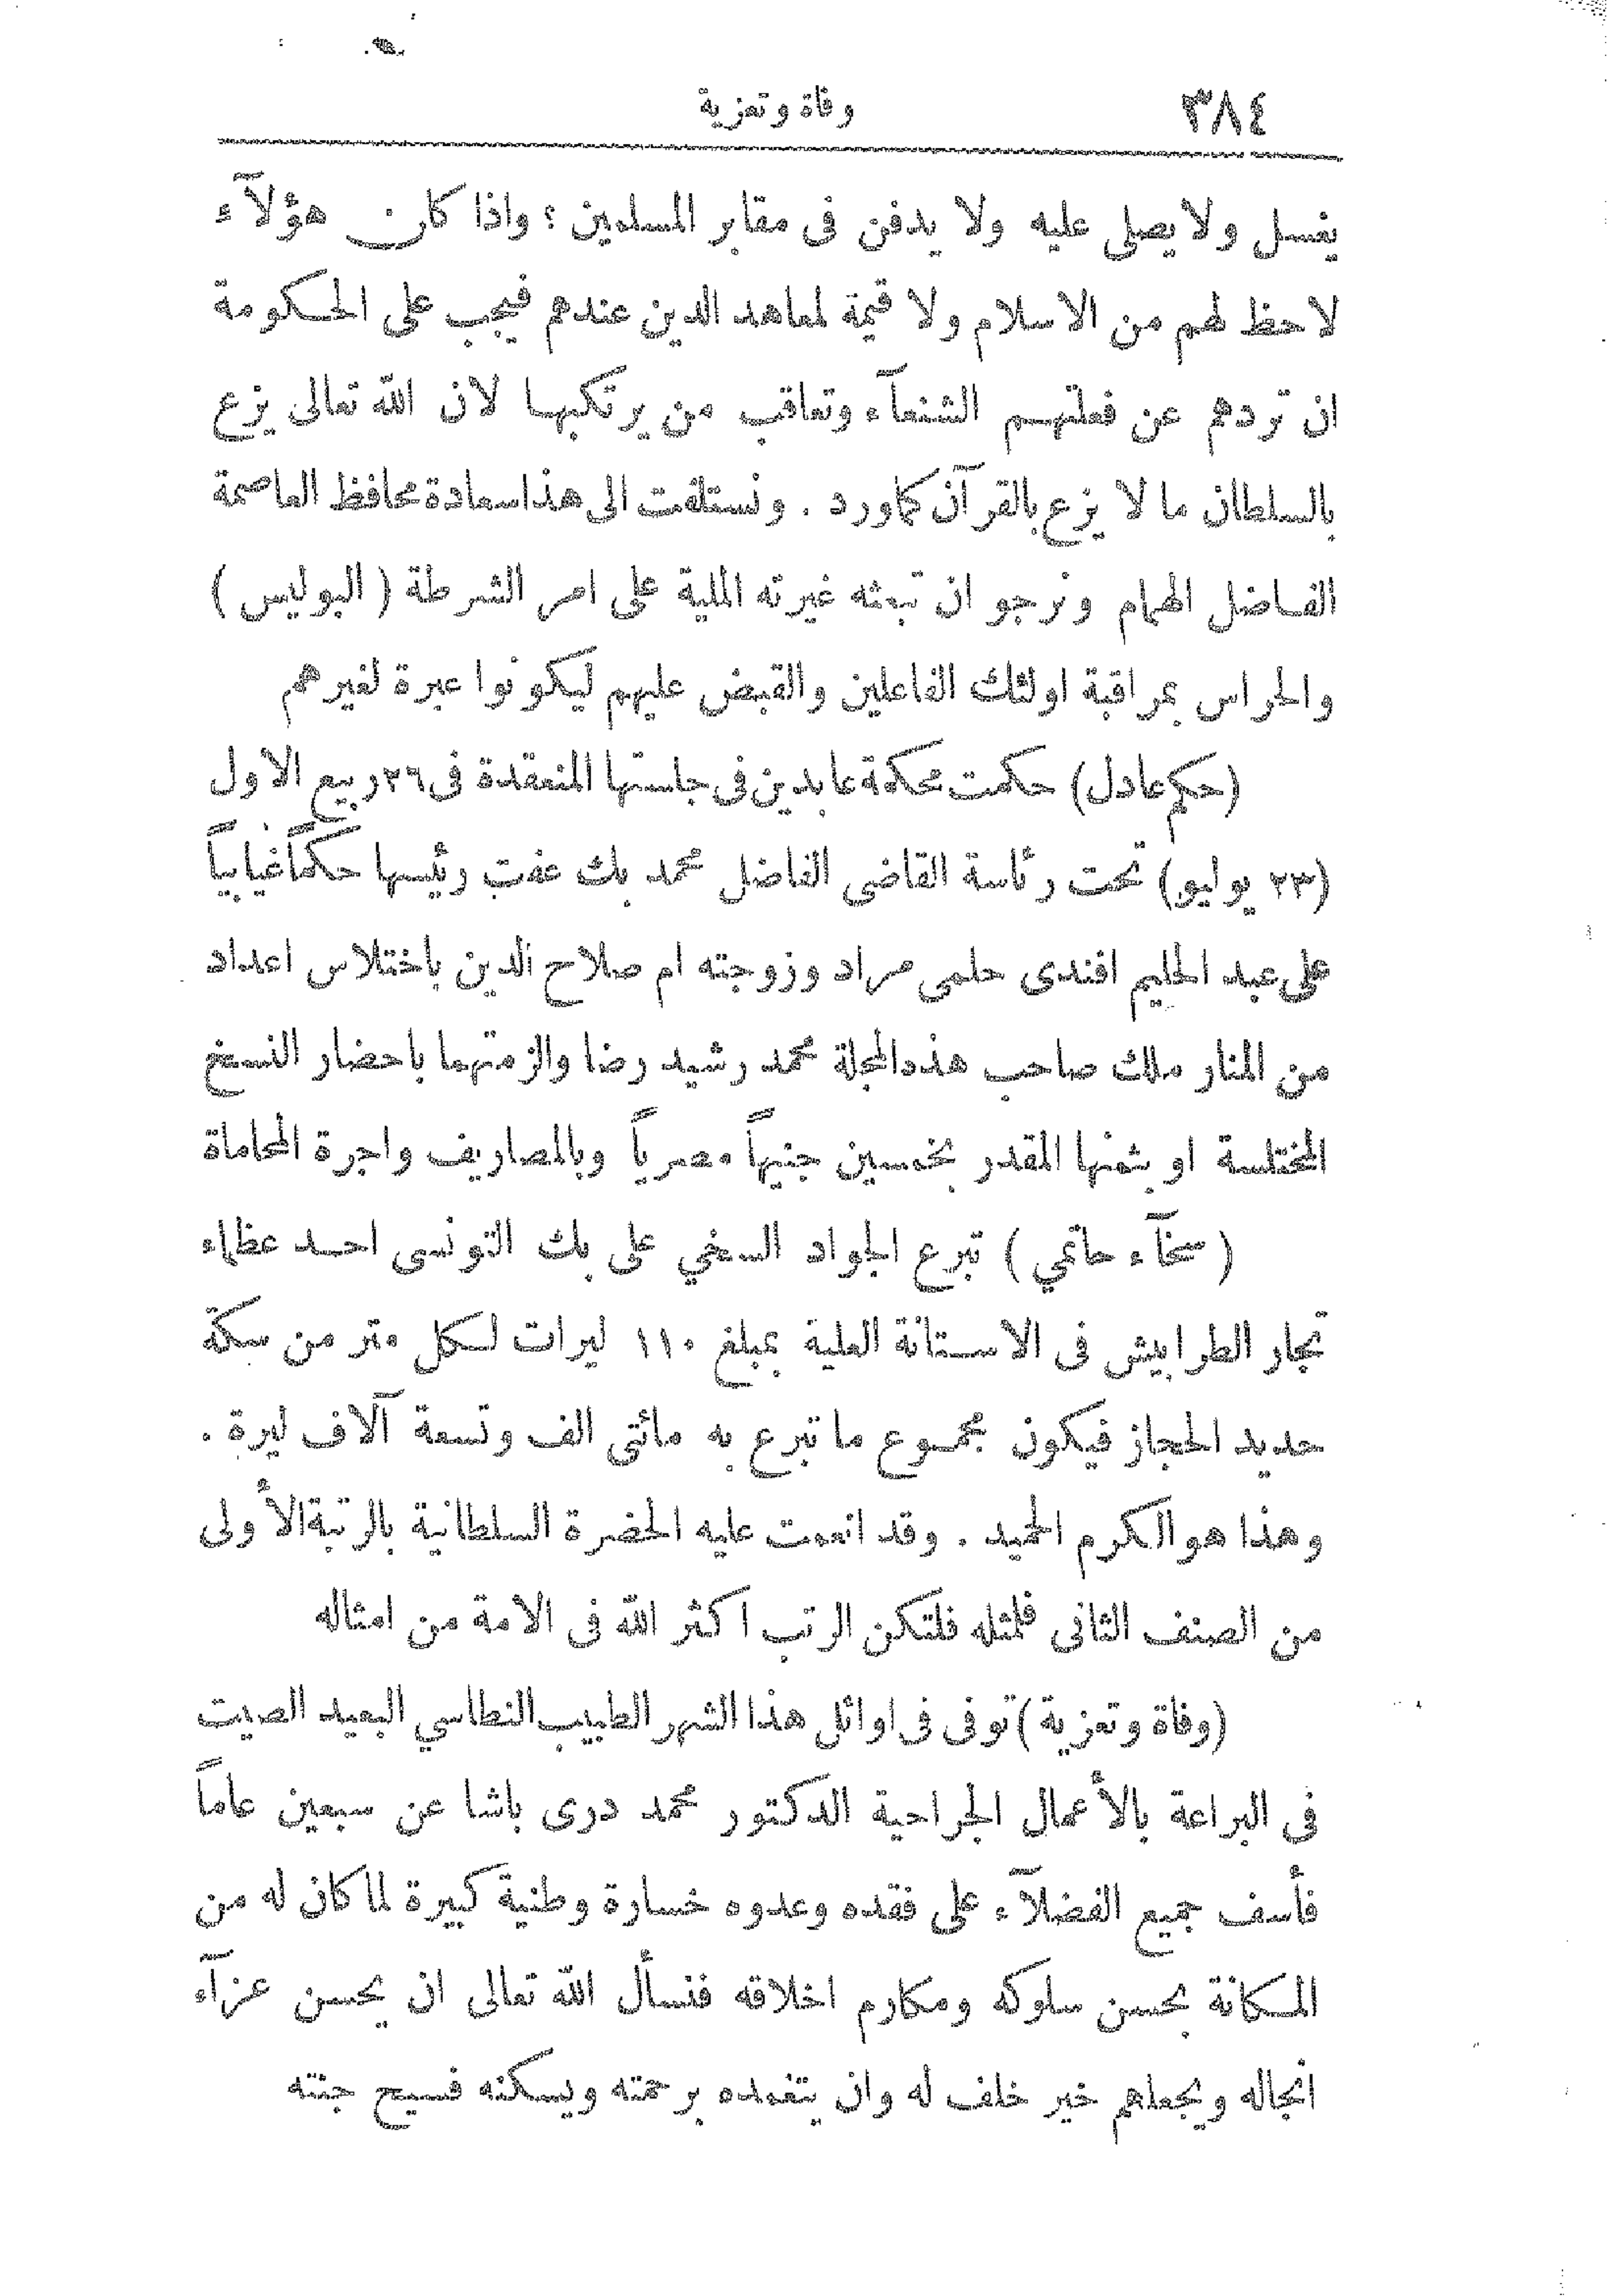 ٣٨٤
وفاة وتعزية
يغسل ولا يصلى عليه ولا يدفن فى مقابر المسلمين ؛ واذا كان هؤلآء
لاحظ لهم من الاسلام ولا قيمة لمعاهد الدين عندهم فيجب على الحكومة
ان تردهم عن فعلتهم الشنعآء وتعاقب من يرتكبها لان الله تعالى يزع
بالسلطان ما لا يزع بالقرآن كما ورد . ونستلفت الى هذا سعادة محافظ العاصمة
الفاضل الهمام ونرجو ان تبعثه غيرته الملية على امر الشرطة ( البوليس )
والحراس بمراقبة اولئك الفاعلين والقبض عليهم ليكونوا عبرة لغيرهم
(حكم عادل) حكمت محكمة عابدين فى جلستها المنعقدة فى ٢٦ ربيع الاول
(٢٣ يوليو) تحت رئاسة القاضى الفاضل محمد بك عفت رئيسها حكماً غيابياً
على عبد الحليم افندى حلمى مراد وزوجته ام صلاح الدين باختلاس اعداد
من المنار ملك صاحب هذه المجلة محمد رشيد رضا والزمتهما باحضار النسخ
المختلسة او بثمنها المقدر بخمسين جنيهاً مصرياً وبالمصاريف واجرة المحاماة
( سخآء حاتمي ) تبرع الجواد السخي على بك التونسى احد عظماء
تجار الطرابيش فى الاستانة العلية بمبلغ ١١٠ ليرات لكل متر من سكة
حديد الحجاز فيكون مجموع ما تبرع به مائتى الف وتسعة آلاف ليرة .
وهذا هو الكرم الحميد . وقد انعمت عليه الحضرة السلطانية بالرتبة الأولى
من الصنف الثانى فلمثله فلتكن الرتب اكثر الله فى الامة من امثاله
(وفاة وتعزية) توفى فى اوائل هذا الشهر الطبيب النطاسي البعيد الصيت
فى البراعة بالأعمال الجراحية الدكتور محمد درى باشا عن سبعين عاماً
فأسف جميع الفضلآء على فقده وعدوه خسارة وطنية كبيرة لما كان له من
المكانة بحسن سلوكه ومكارم اخلاقه فنسأل الله تعالى ان يحسن عزآء
انجاله ويجعلهم خير خلف له وان يتغمده برحمته ويسكنه فسيح جنته